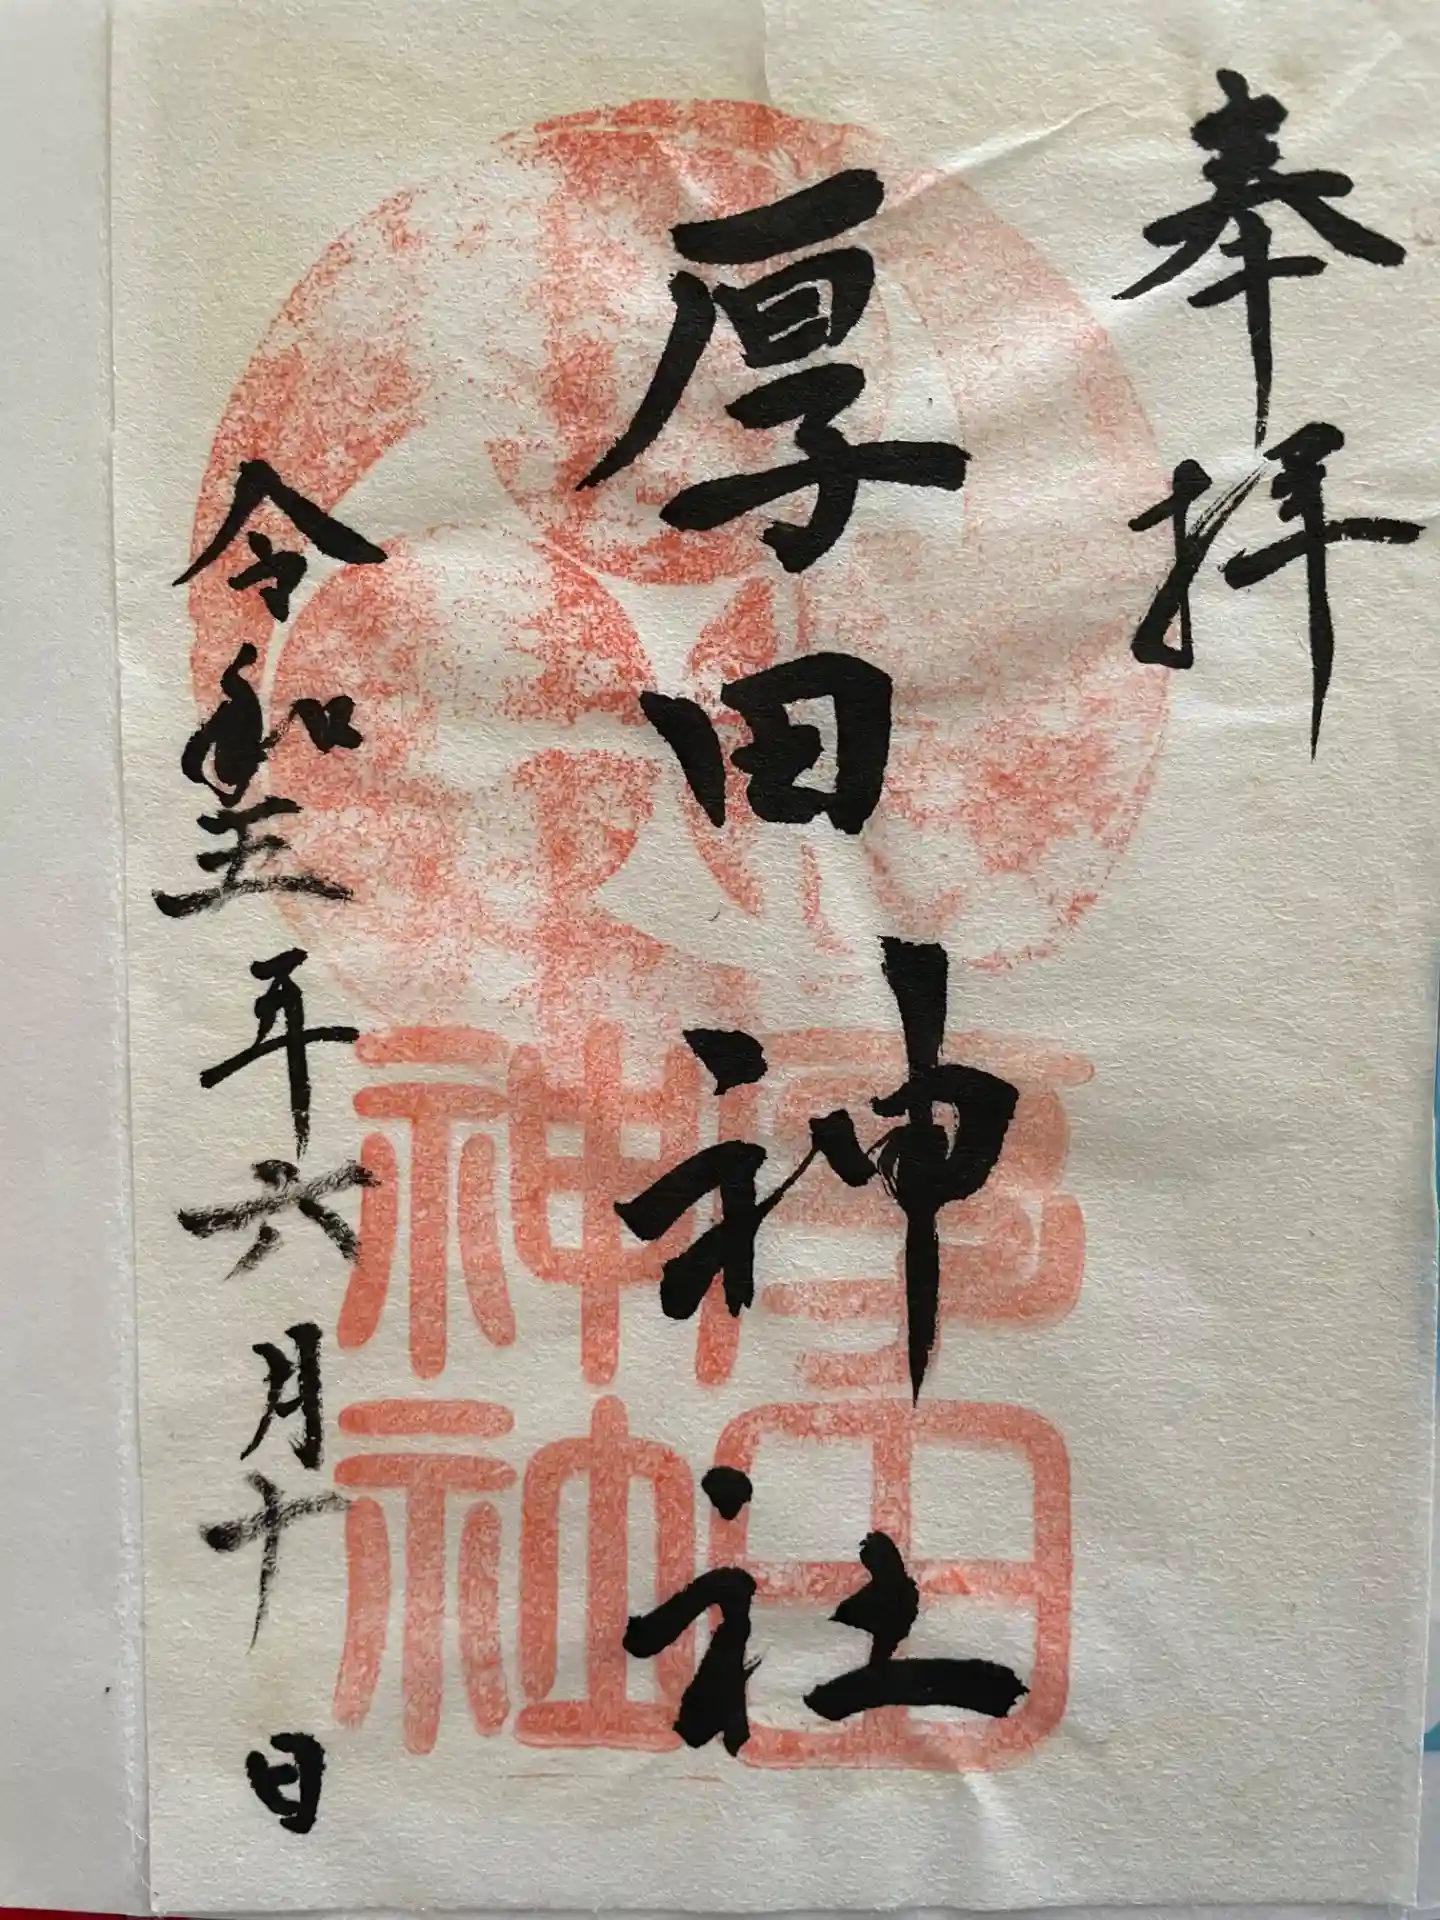 奉拝
厚田神社
令和五年六月十日
厚田
神社